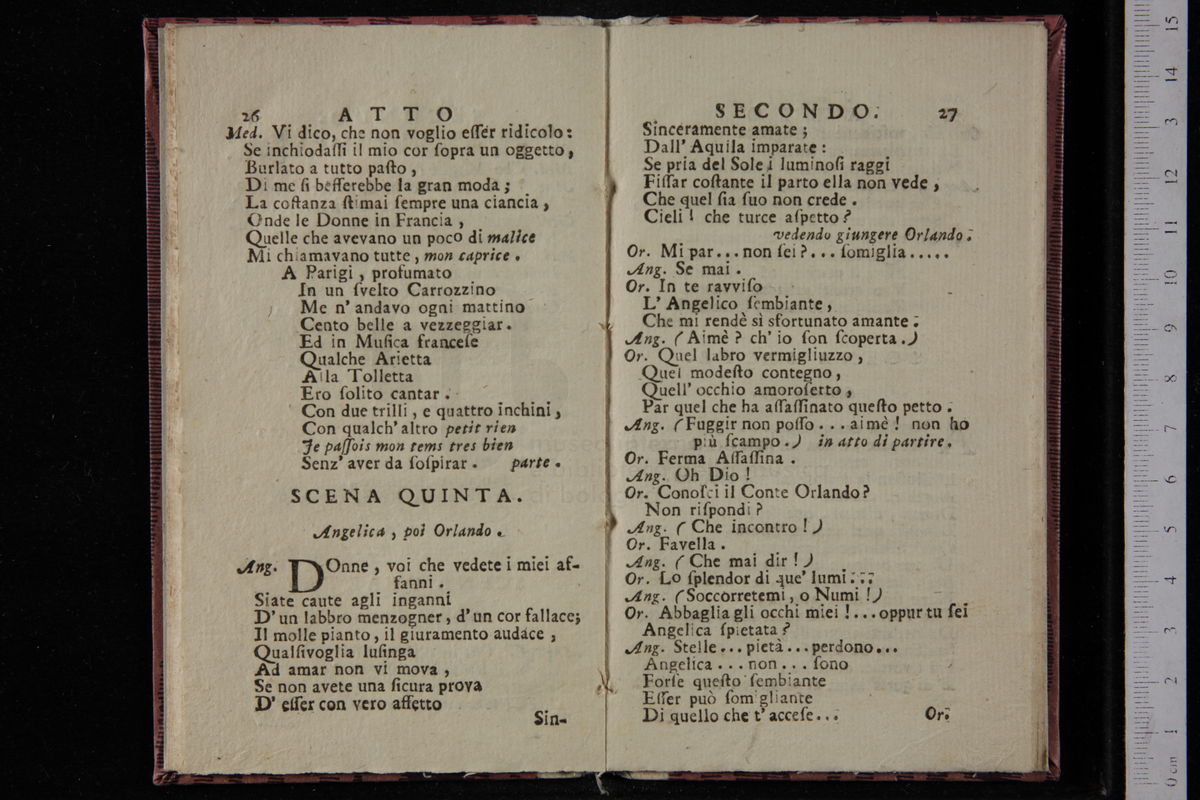 26 ATTO
Med. Vi dico, che non voglio eſſer ridicolo:
Se inchiodaſſi il mio cor ſopra un oggetto,
Burlato a tutto paſto,
Di me ſi befferebbe la gran moda;
La coſtanza ſtimai ſempre una ciancia,
Onde le Donne in Francia,
Quelle che avevano un poco di malice
Mi chiamavano tutte, mon caprice.
A Parigi, profumato
In un ſvelto Carrozzino
Me n' andavo ogni mattino
Cento belle a vezzeggiar.
Ed in Muſica franceſe
Qualche Arietta
Alla Tolletta
Ero ſolito cantar.
Con due trilli, e quattro inchini,
Con qualch' altro petit rien
Je paſſois mon tems tres bien
Senz' aver da ſoſpirar. parte.
SCENA QUINTA.
Angelica, poi Orlando.
Ang. DOnne, voi che vedete i miei af-
fanni.
Siate caute agli inganni
D' un labbro menzogner, d' un cor fallace;
Il molle pianto, il giuramento audace,
Qualſivoglia luſinga
Ad amar non vi mova,
Se non avete una ſicura prova
D' eſſer con vero affetto
Sin-
SECONDO. 27
Sinceramente amate;
Dall' Aquila imparate:
Se pria del Sole i luminoſi raggi
Fiſſar coſtante il parto ella non vede,
Che quel ſia ſuo non crede.
Cieli! che turce aſpetto?
vedendo giungere Orlando.
Or. Mi par... non ſei?... ſomiglia.....
Ang. Se mai.
Or. In te ravviſo
L' Angelico ſembiante,
Che mi rendè sì sfortunato amante.
Ang. (Aimè? ch' io ſon ſcoperta.)
Or. Quel labro vermigliuzzo,
Quel modeſto contegno,
Quell' occhio amoroſetto,
Par quel che ha aſſaſſinato queſto petto.
Ang. (Fuggir non poſſo... aimè! non ho
più ſcampo.) in atto di partire.
Or. Ferma Aſſaſſina.
Ang. Oh Dio!
Or. Conoſci il Conte Orlando?
Non riſpondi?
Ang. (Che incontro!)
Or. Favella.
Ang. (Che mai dir!)
Or. Lo ſplendor di que' lumi...
Ang. (Soccorretemi, o Numi!)
Or. Abbaglia gli occhi miei!...oppur tu ſei
Angelica ſpietata?
Ang. Stelle... pietà...perdono...
Angelica... non... ſono
Forſe queſto ſembiante
Eſſer può ſomigliante
Di quello che t' acceſe...
Or.
0 cm 1 2 3 4 5 6 7 8 9 10 11 12 13 14 15